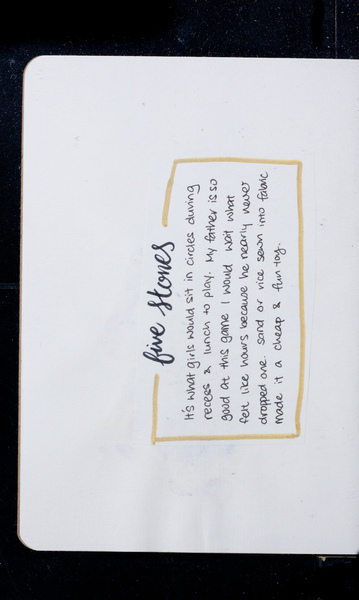 five stones
It's what girls would sit in circles during
recess & lunch to play. My father is so
good at this game I would wait what
felt like hours because he nearly never
dropped one. sand or rice sewn into fabric
made it a cheap & fun toy.